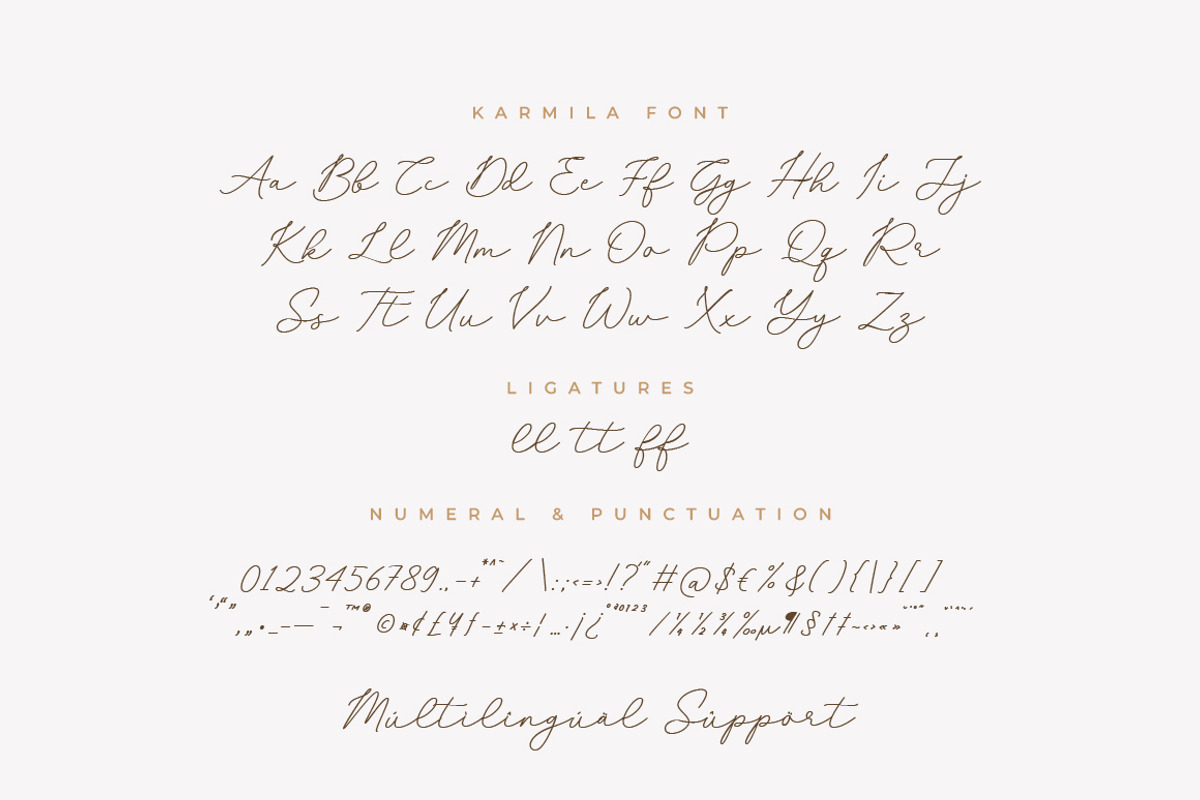 KARMILA FONT
Aa Bb Cc Dd Ee Ff Gg Hh Ii Jj
Kk Ll Mm Nn Oo Pp Qq Rr
Ss Tt Uu Vv Ww Xx Yy Zz
LIGATURES
ll tt ff
NUMERAL & PUNCTUATION
0123456789.,-+*^~/\:;<=>!?'"#@$€%&(){|}[]
‘’“”‚„•_–—¯¬™®©¤¢£¥ƒ−±×÷¦…·¡¿ºª0123⁄¼½¾‰µ¶§†‡~‹›«»
Múltilîngúàl Sûppört